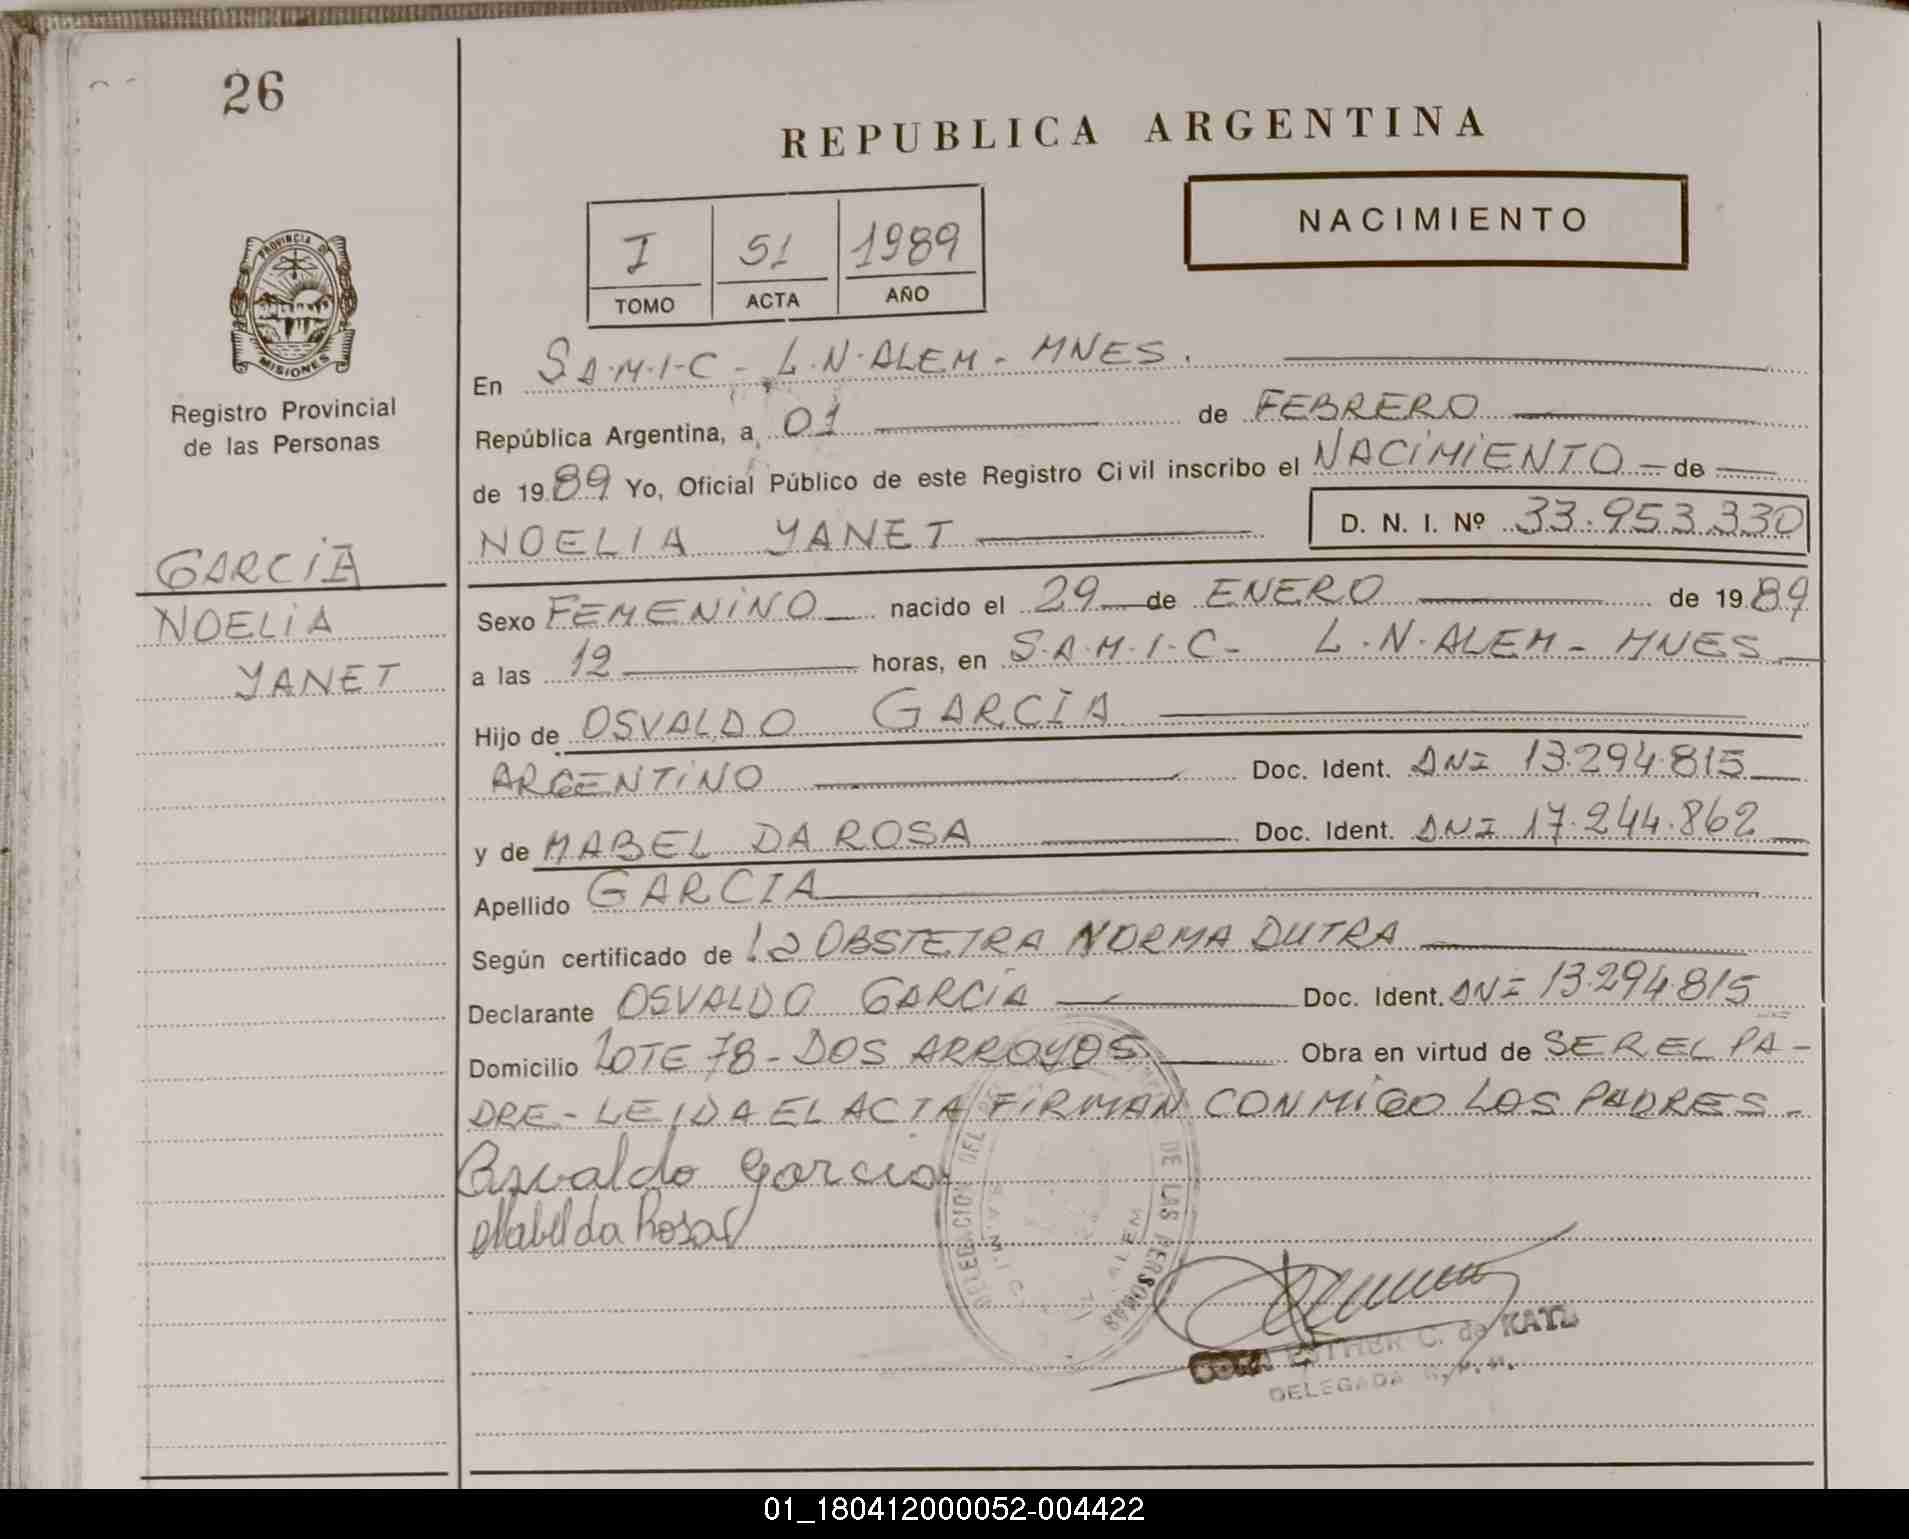 26
REPUBLICA ARGENTINA
NACIMIENTO
I 51 1989
TOMO ACTA AÑO
PROVINCIA DE
MISIONES
Registro Provincial
de las Personas
GARCIA
NOELIA
YANET
En S.A.M.I.C - L.N.ALEM - MNES.
República Argentina, a 01 de FEBRERO
de 1989 Yo, Oficial Público de este Registro Civil inscribo el NACIMIENTO de
NOELIA YANET D. N. I. Nº 33.953.330
Sexo FEMENINO nacido el 29 de ENERO de 1989
a las 12 horas, en S.A.M.I.C - L.N.ALEM - MNES
Hijo de OSVALDO GARCIA
ARGENTINO Doc. Ident. DNI 13.294.815
y de MABEL DA ROSA Doc. Ident. DNI 17.244.862
Apellido GARCIA
Según certificado de la OBSTETRA NORMA DUTRA
Declarante OSVALDO GARCIA Doc. Ident. DNI 13.294.815
Domicilio LOTE 78 - DOS ARROYOS Obra en virtud de SER EL PA-
DRE - LEIDA EL ACTA FIRMAN CONMIGO LOS PADRES -
Osvaldo Garcia
Mabel da Rosa
DELEGACION DEL DE LAS PERSONAS
S.A.M.I.C. ALEM
ESTHER C. de KATZ
DELEGADA
01_180412000052-004422